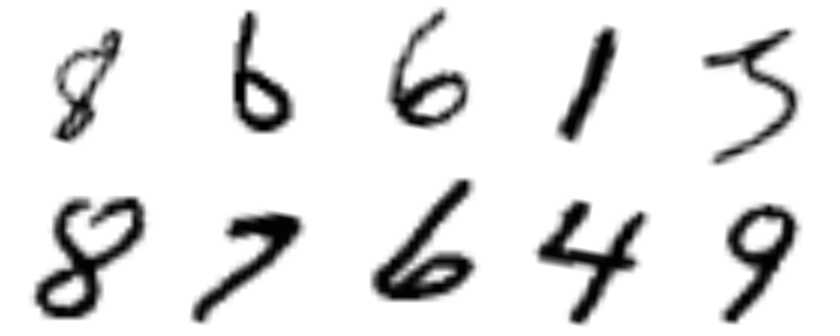 8 6 6 1 5
8 7 6 4 9